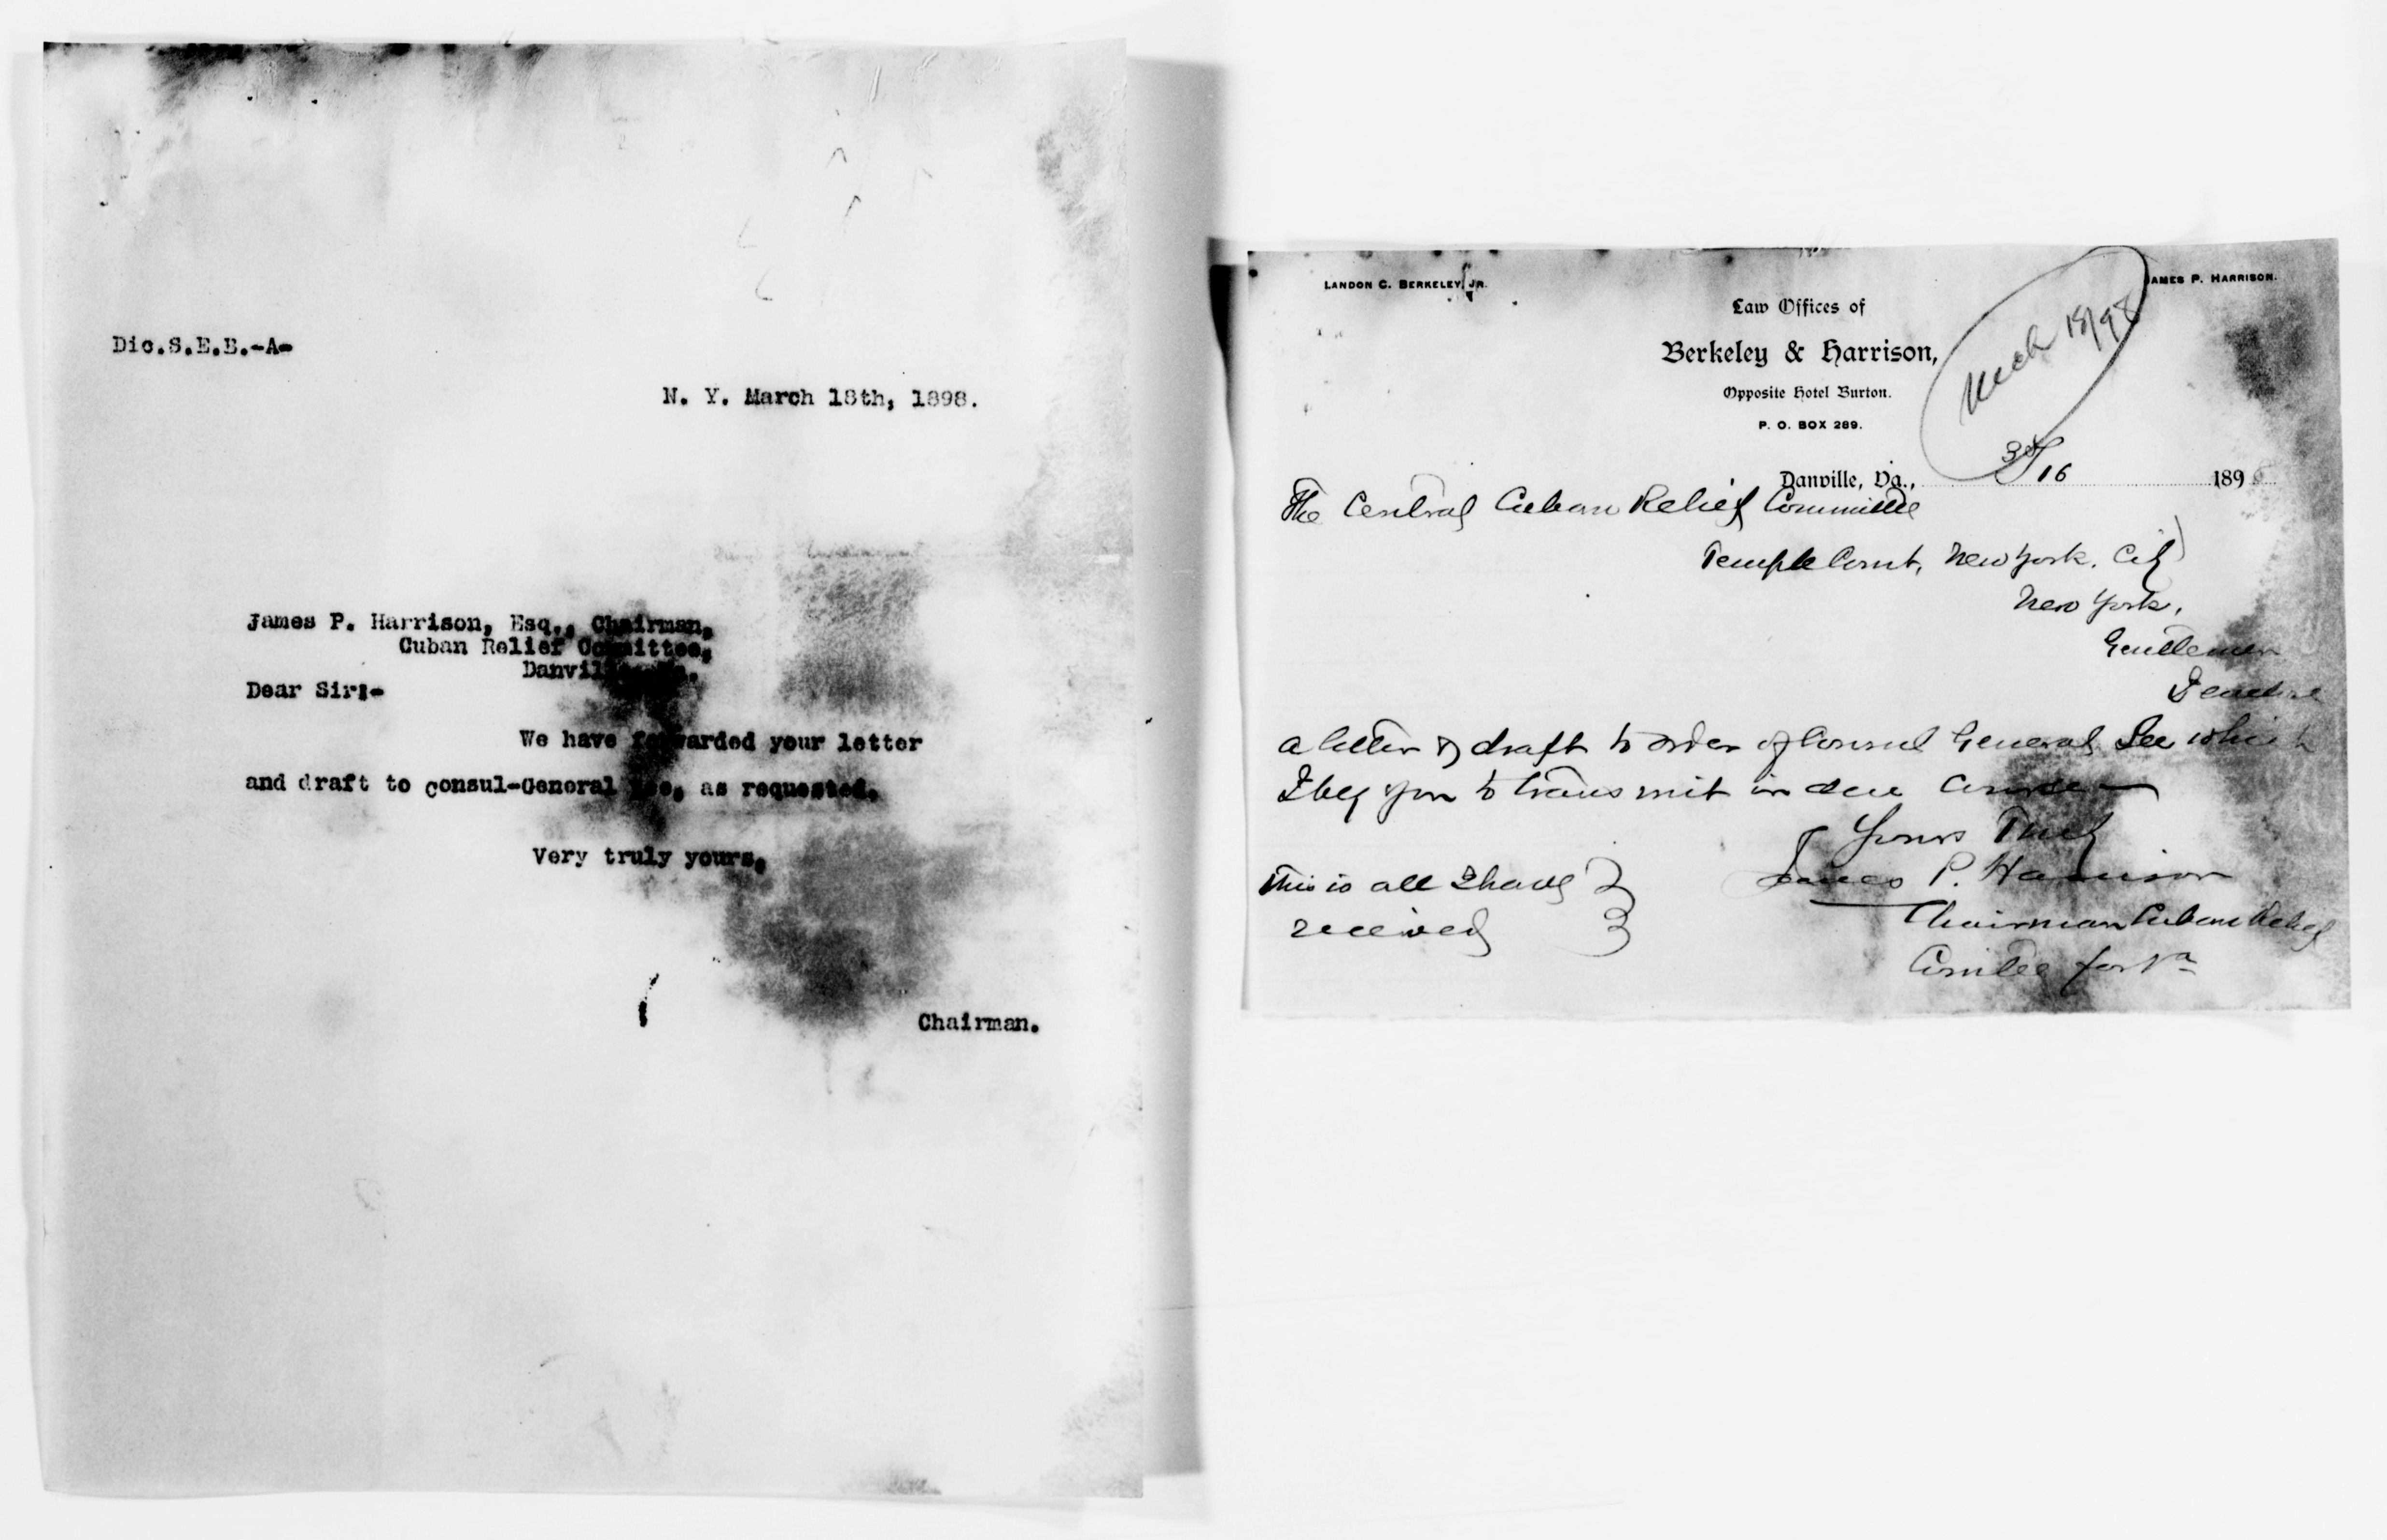 Dic.S.E.B.-A-
N. Y. March 18th, 1898.
James P. Harrison, Esq., Chairman,
Cuban Relief Committee,
Danville, Va.
Dear Sir:-
We have forwarded your letter
and draft to consul-General Lee, as requested.
Very truly yours,
Chairman.
LANDON C. BERKELEY, JR.
JAMES P. HARRISON.
Law Offices of
Berkeley & Harrison,
Opposite Hotel Burton.
P. O. BOX 289.
Mch 18/98
Danville, Va., 3/16 1898
The Central Cuban Relief Committee
Temple Court, New York, City
New York.
Gentlemen
I enclose
a letter & draft to order of Consul General Lee which
I beg you to transmit in due course
Yours Truly
James P. Harrison
Chairman Cuban Relief
Comtee for Va
This is all I have
received